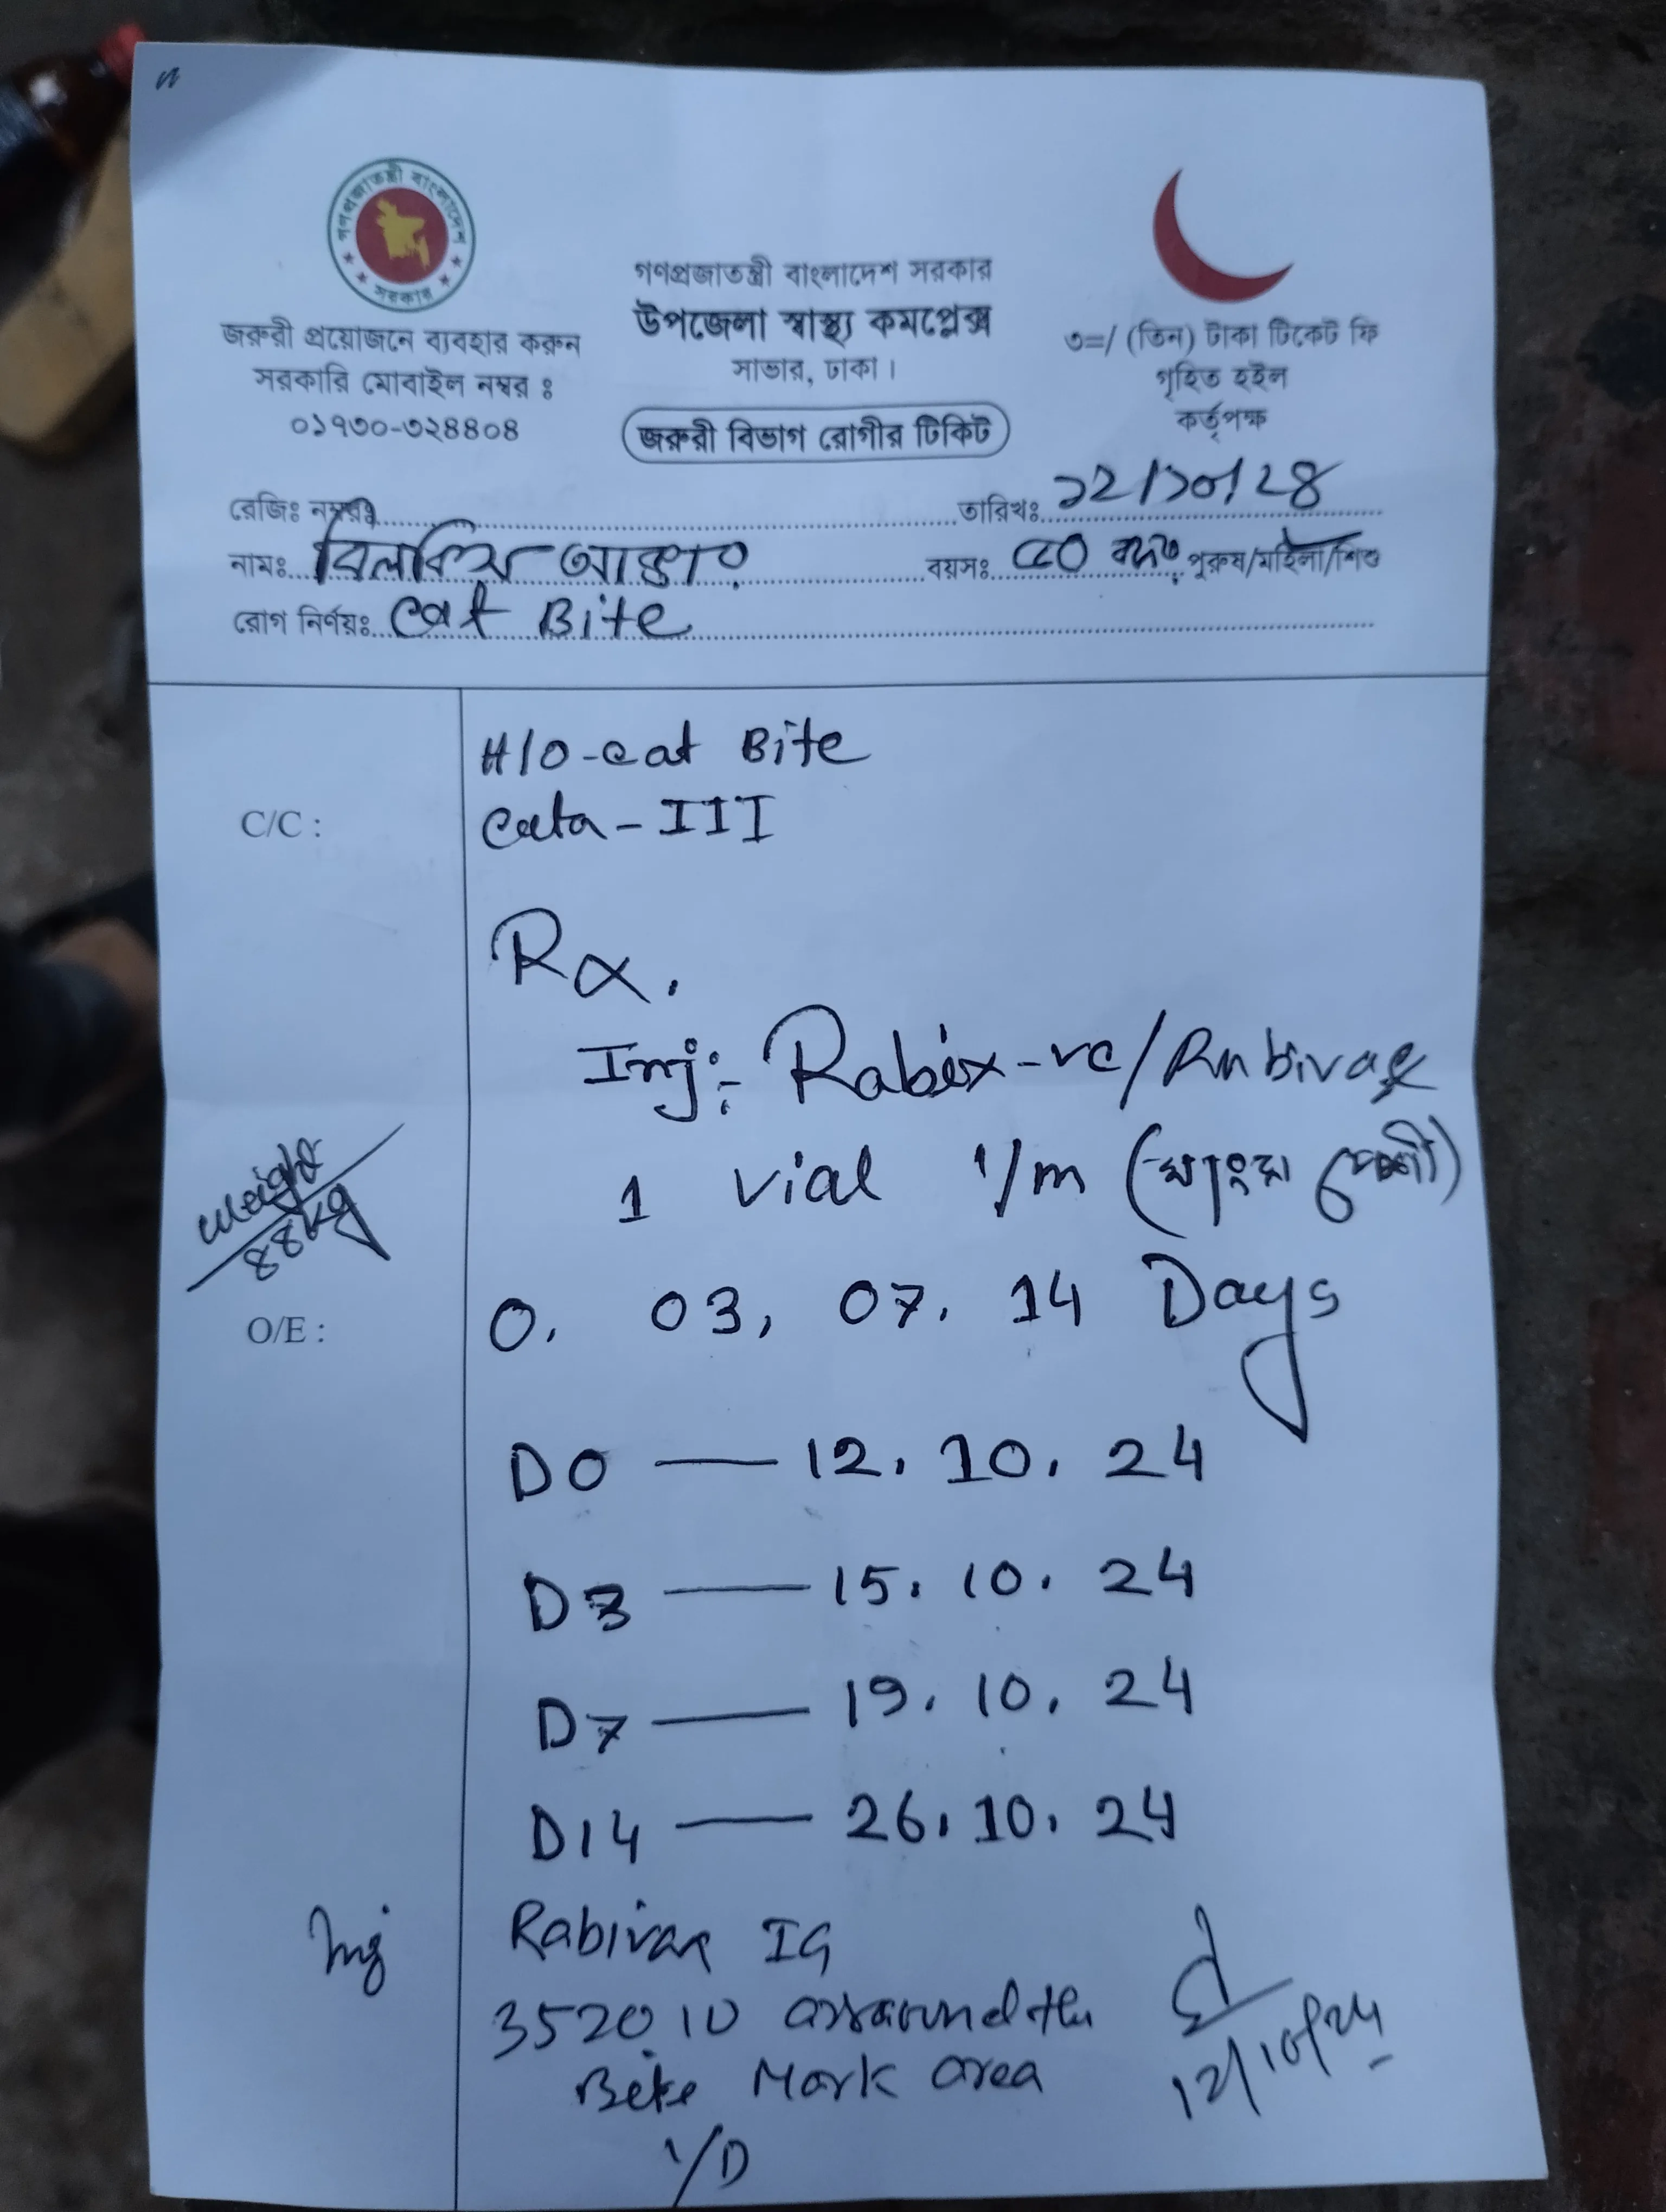 গণপ্রজাতন্ত্রী বাংলাদেশ
সরকার
জরুরী প্রয়োজনে ব্যবহার করুন
সরকারি মোবাইল নম্বর ঃ
০১৭৩০-৩২৪৪০৪
গণপ্রজাতন্ত্রী বাংলাদেশ সরকার
উপজেলা স্বাস্থ্য কমপ্লেক্স
সাভার, ঢাকা।
জরুরী বিভাগ রোগীর টিকিট
৩=/ (তিন) টাকা টিকেট ফি
গৃহিত হইল
কর্তৃপক্ষ
রেজিঃ নম্বরঃ তারিখঃ ১২/১০/২৪
নামঃ বিলকিস আক্তার বয়সঃ ৫০ পুরুষ/মহিলা/শিশু
রোগ নির্ণয়ঃ Cat Bite
H/O-Cat Bite
C/C : Cata-III
Rx.
Inj:- Rabix-vc/Rabivax
1 vial I/m (মাংস পেশী)
weight
88kg
O/E :
0. 03, 07. 14 Days
D0 — 12. 10. 24
D3 — 15. 10. 24
D7 — 19. 10. 24
D14 — 26. 10. 24
Inj Rabivax IG
3520 IU arround the
Bite Mark area
I/D
12/10/24